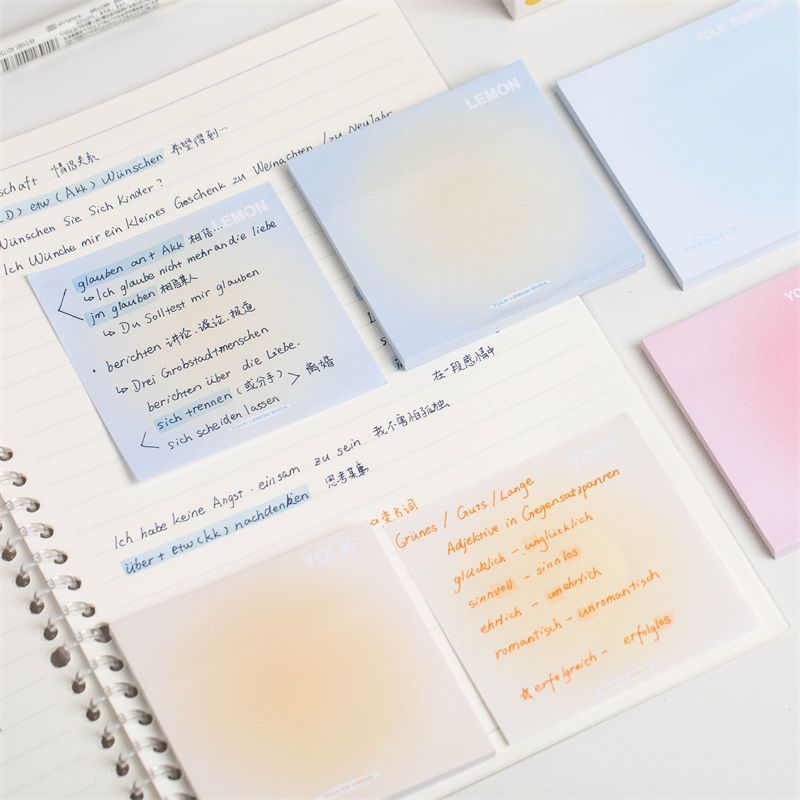 schaft 情侣关系
D) etw (Akk) Wünschen 希望得到…
Wünschen Sie Sich Kinder?
Ich Wünche mir ein kleines Geschenk zu Weinachten / zu Neujahr
LEMON
glauben an + Akk 相信…
↳ Ich glaube nicht mehr an die liebe
jm glauben 相信某人
↳ Du Solltest mir glauben
• berichten 讲论.谈论.报道
↳ Drei Grobstadtmenschen
berichten über die Liebe.
sich trennen (或分手) > 离婚
sich scheiden lassen
YOLK LEMON SODA
LEMON
YOLK LEMON SODA
YOLK SUMMER
在一段感情中
Ich habe keine Angst. einsam zu sein 我不害怕孤独
über + etw (kk) nachdenken 思考某事
YOLK
YOLK
→变名词
Grünes / Guts / Lange
Adjektive in Gegensatzpannren
glücklich - unglücklich
sinnvoll - sinnlos
ehrlich - unehrlich
romantisch - unromantisch
☆ erfolgreich - erfolglos
YO